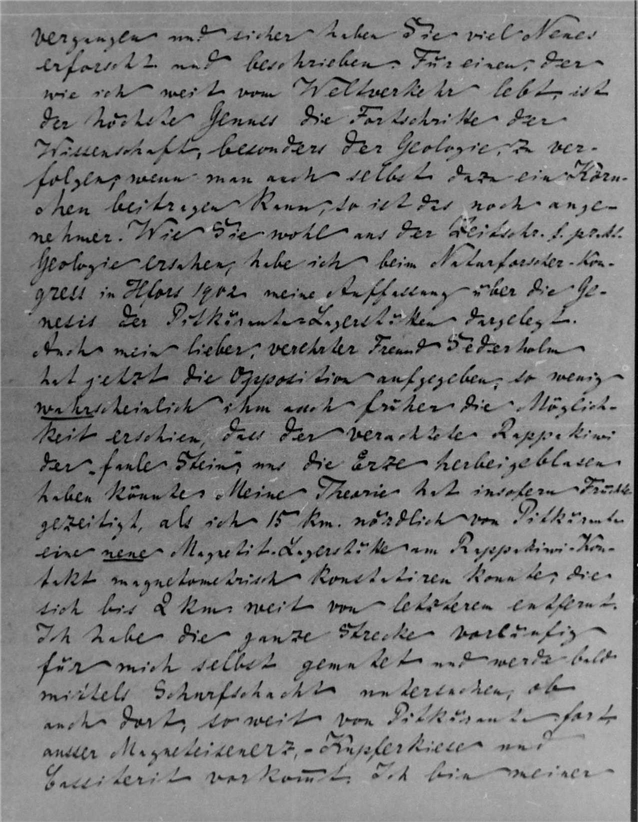 vergangen und sicher haben Sie viel Neues
erforscht und beschrieben. Für einen, der
wie ich weit vom Weltverkehr lebt, ist
der höchste Genuss die Fortschritte der
Wissenschaft, besonders der Geologie, zu ver-
folgen; wenn man auch selbst dazu ein Körn-
chen beitragen kann, so ist das noch ange-
nehmer. Wie Sie wohl aus der Zeitschr. f. prakt.
Geologie ersahen, habe ich beim Naturforscher-Kon-
gress in Hfors 1902 meine Auffassung über die Ge-
nesis der Pitkäranta-Lagerstätten dargelegt.
Auch mein lieber, verehrter Freund Sederholm
hat jetzt die Opposition aufgegeben, so wenig
wahrscheinlich ihm auch früher die Möglich-
keit erschien, dass der verachtete Rappakiwi
der „faule Stein“, uns die Erze herbeigeblasen
haben könnte. Meine Theorie hat insofern Früchte
gezeitigt, als ich 15 km. nördlich von Pitkäranta
eine neue Magnetit-Lagerstätte am Rappakiwi-Kon-
takt magnetometrisch konstatiren konnte, die
sich bis 2 km weit von letzterem entfernt.
Ich habe die ganze Strecke vorläufig
für mich selbst gemutet und werde bald
mittels Schurfschacht untersuchen, ob
auch dort, so weit von Pitkäranta fort,
ausser Magneteisenerz, Kupferkiese und
Cassiterit vorkommt. Ich bin meiner